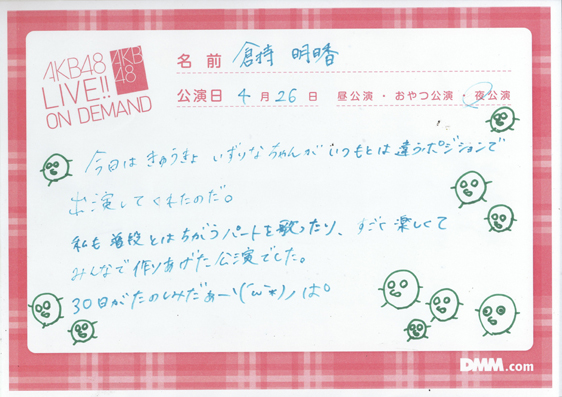 AKB48
LIVE!!
ON DEMAND
AKB
48
名前 倉持 明日香
公演日 4月26日 昼公演・おやつ公演・夜公演
今日は きゅうきょ いずりなちゃんが いつもとは違うポジションで
出演してくれたのだ。
私も 普段とはちがうパートを歌ったり、すごく楽しくて
みんなで作りあげた公演でした。
30日がたのしみだぁーヽ(´ω`*)ノ は。
DMM.com